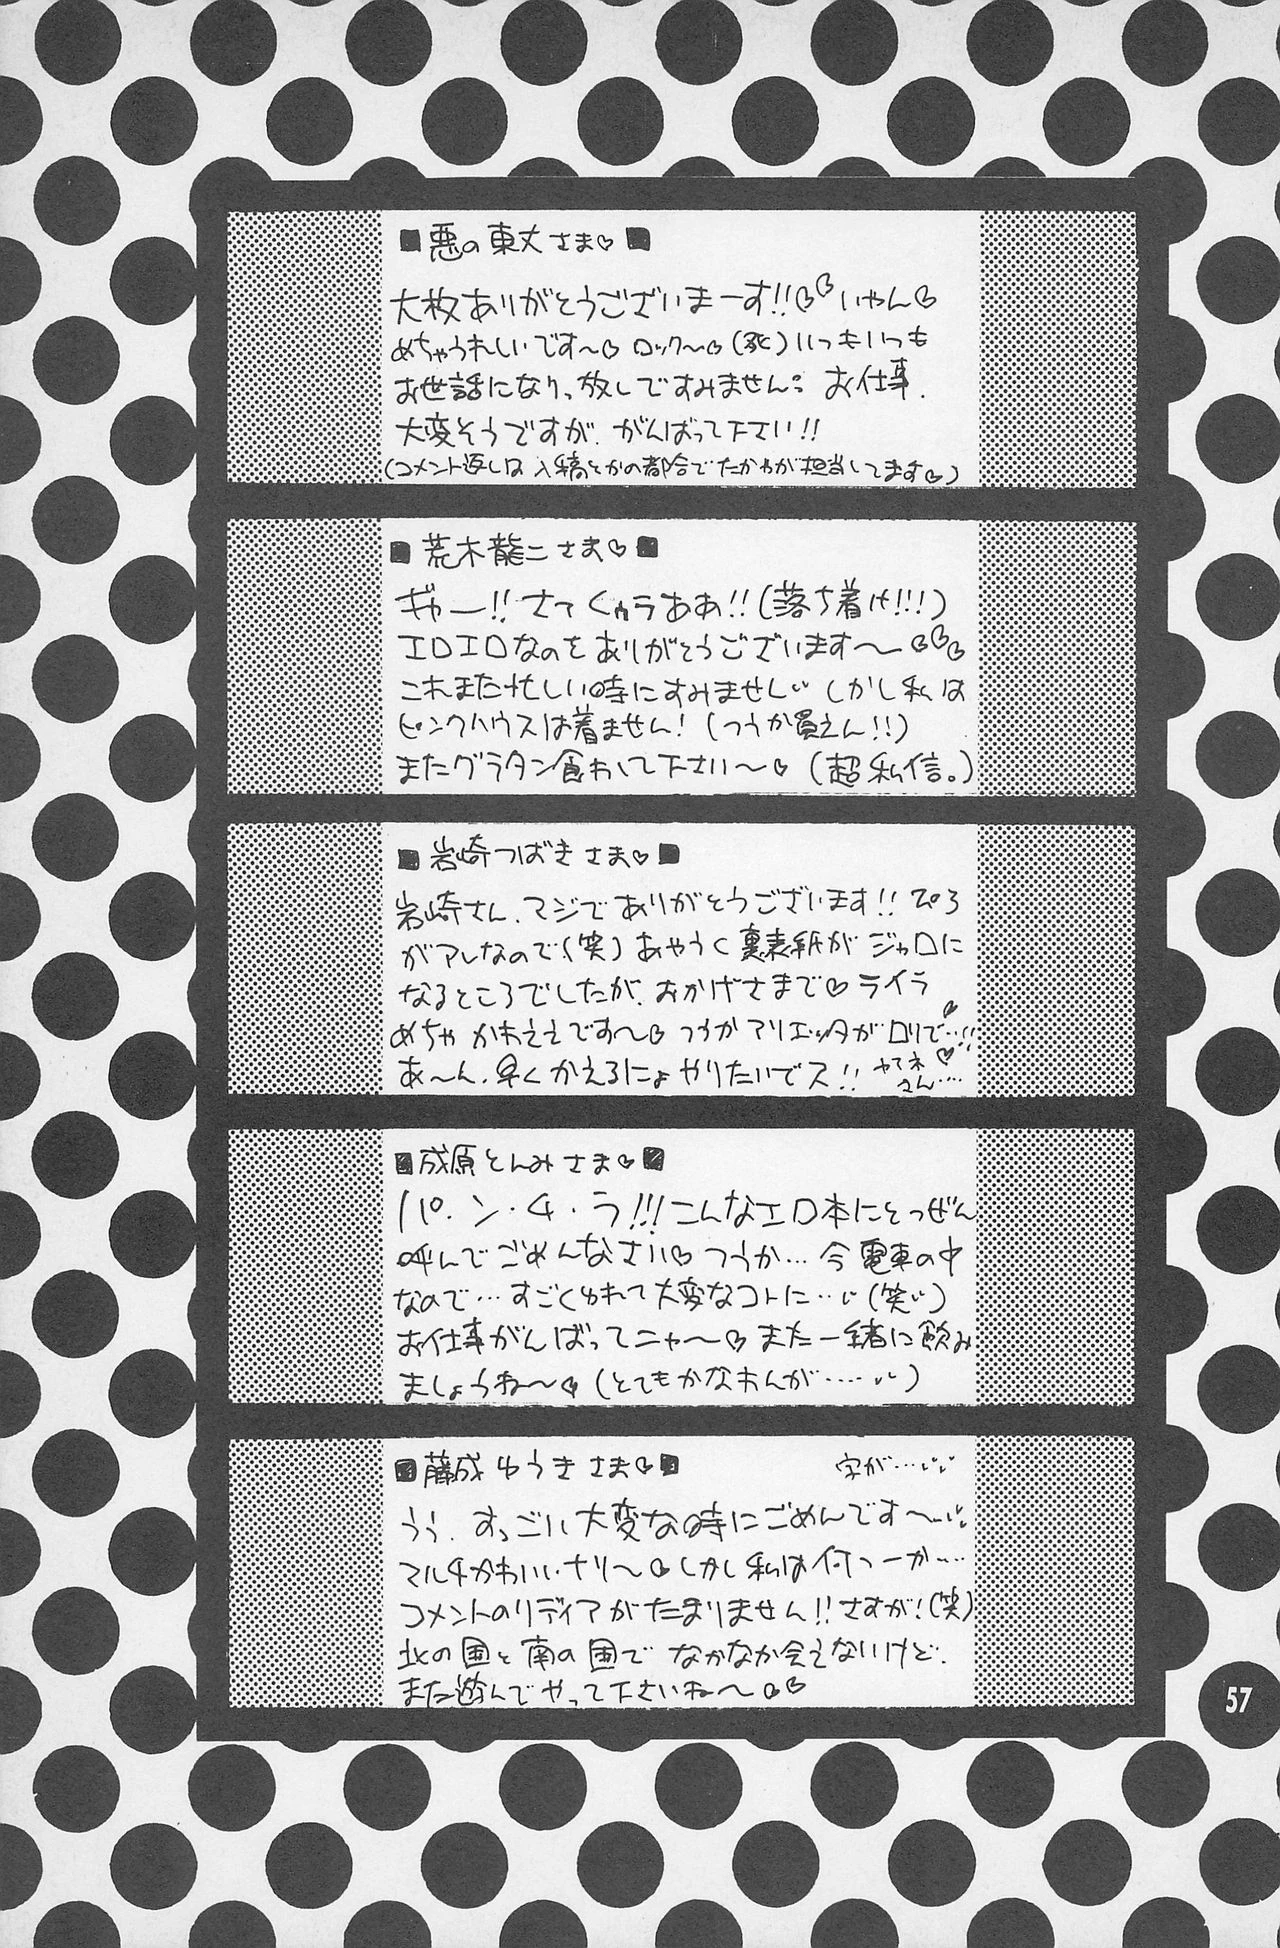 ■悪の東丈さま♡■
大枚ありがとうございまーす!!♡♡いやん♡
めちゃうれしいです〜♡ ロック〜♡(死)いつもいつも
お世話になりっ放しですみません。お仕事
大変そうですが、がんばって下さい!!
(コメント返しは入稿とかの都合でたかやが担当してます♡)
■荒木龍二さま♡■
ギャー!!さてくゥラああ!!(落ち着け!!!)
エロエロなのをありがとうございます〜♡♡♡
これまた忙しい時にすみません しかし私は
ピンクハウスは着ません!(つうか買えん!!)
またグラタン食わして下さい〜♡(超私信。)
■岩崎つばきさま♡■
岩崎さん、マジでありがとうございます!!ぴろ
がアレなので(笑)あやうく裏表紙がジャロに
なるところでしたが、おかげさまで♡ライラ
めちゃかわええです〜♡つうかマリエッタがロリで…!!
あ〜ん、早くかえるにょやりたいでス!!ヤマネ♡
さん…
■成原とんみさま♡■
パ・ン・チ・ラ!!!こんなエロ本にとつぜん
呼んでごめんなさい♡つうか…今電車の中
なので…すごくゆれて大変なコトに…(笑)
お仕事がんばってニャ〜♡また一緒に飲み
ましょうね〜♡(とてもかなわんが……)
■藤成ゆうきさま♡■ 字が…
うぅ、すっごい大変な時にごめんです〜
マルチかわいいナリ〜♡しかし私は何つーか…
コメントのリディアがたまりません!!さすが!(笑)
北の国と南の国でなかなか会えないけど、
また遊んでやって下さいね〜♡♡
57